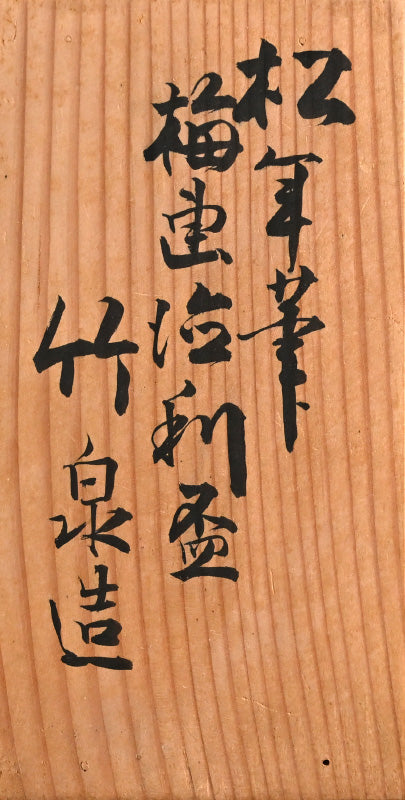 松年筆
梅画徳利盃
竹泉造